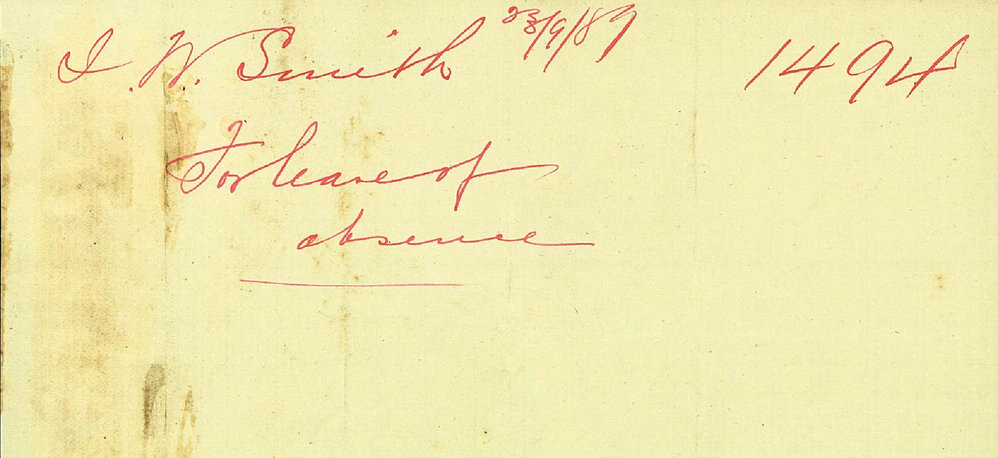 J. W. Smith 23/9/89 1494
For leave of
absence